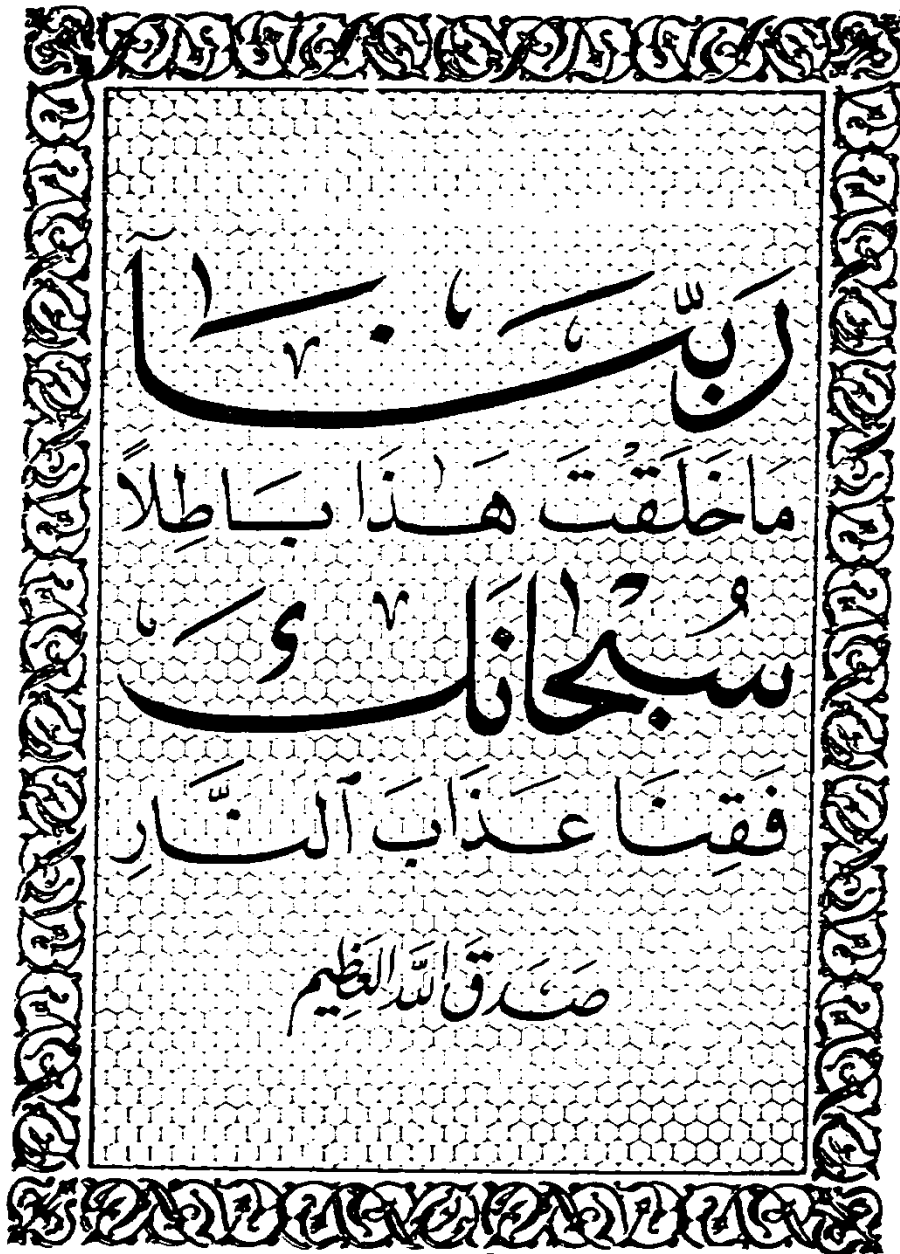 رَبَّنَا
مَا خَلَقْتَ هَٰذَا بَاطِلًا
سُبْحَانَكَ
فَقِنَا عَذَابَ ٱلنَّارِ
صَدَقَ اللَّه العَظِيم